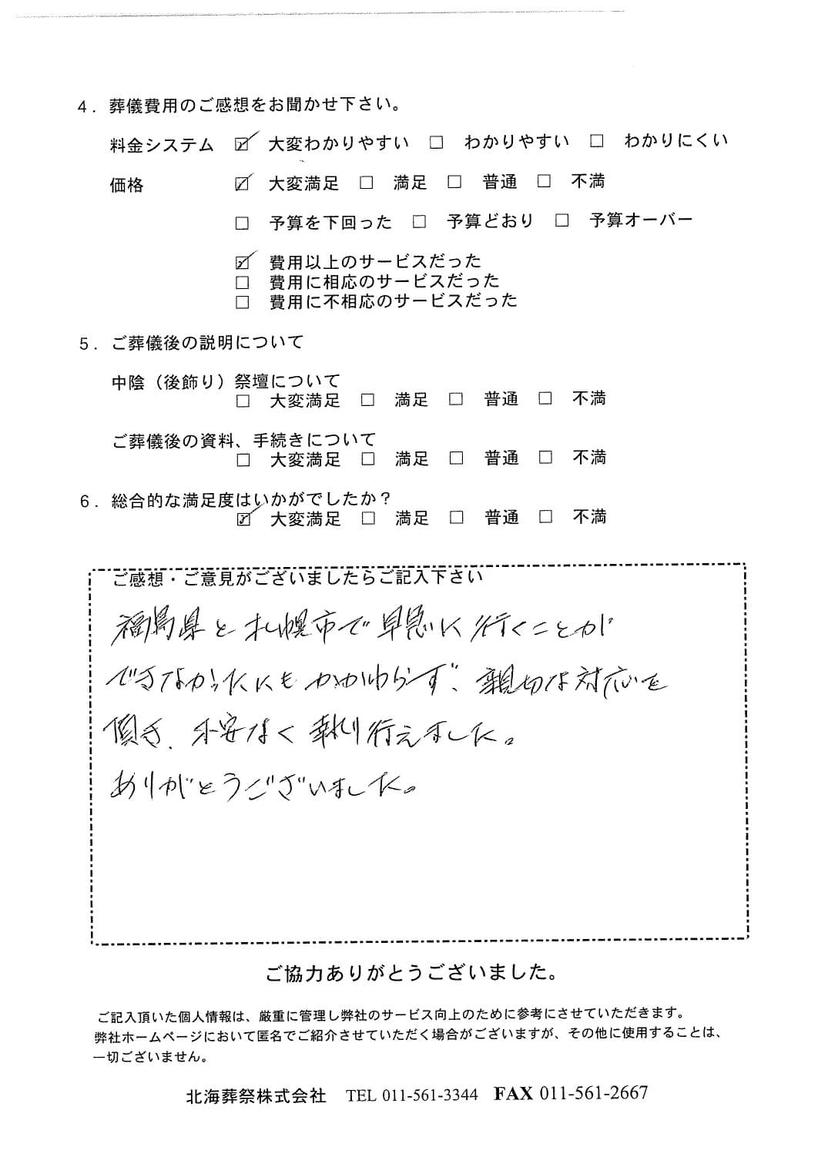 4．葬儀費用のご感想をお聞かせ下さい。
料金システム ☑ 大変わかりやすい □ わかりやすい □ わかりにくい
価格 ☑ 大変満足 □ 満足 □ 普通 □ 不満
□ 予算を下回った □ 予算どおり □ 予算オーバー
☑ 費用以上のサービスだった
□ 費用に相応のサービスだった
□ 費用に不相応のサービスだった
5．ご葬儀後の説明について
中陰（後飾り）祭壇について
□ 大変満足 □ 満足 □ 普通 □ 不満
ご葬儀後の資料、手続きについて
□ 大変満足 □ 満足 □ 普通 □ 不満
6．総合的な満足度はいかがでしたか？
☑ 大変満足 □ 満足 □ 普通 □ 不満
ご感想・ご意見がございましたらご記入下さい
福島県と札幌市で早急に行くことが
できなかったにもかかわらず、親切な対応を
頂き、不安なく執り行えました。
ありがとうございました。
ご協力ありがとうございました。
ご記入頂いた個人情報は、厳重に管理し弊社のサービス向上のために参考にさせていただきます。
弊社ホームページにおいて匿名でご紹介させていただく場合がございますが、その他に使用することは、
一切ございません。
北海葬祭株式会社 TEL 011-561-3344 FAX 011-561-2667